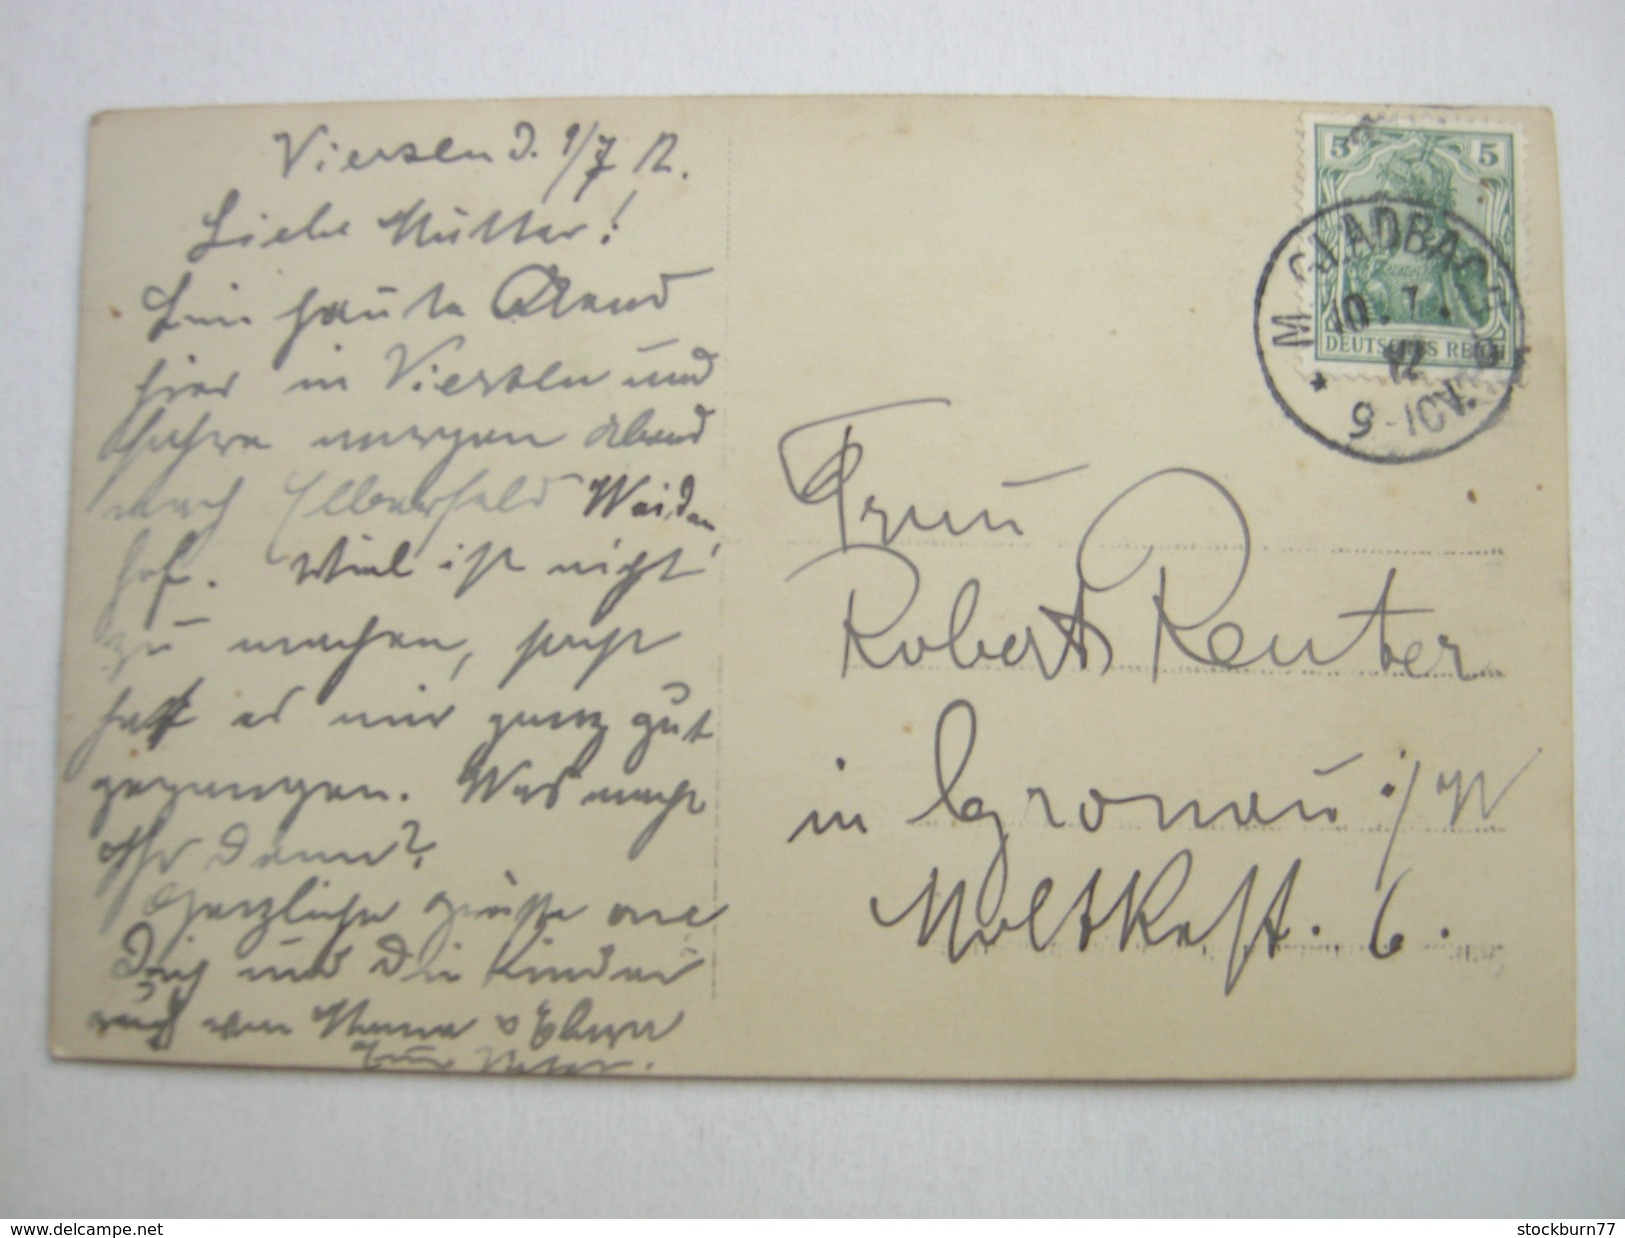 Viersen d. 9/7 12.
Liebe Mutter!
Bin heute Abend
hier in Viersen und
fahre morgen Abend
nach Elberfeld Weiden
hof. Viel ist nicht
zu machen, sonst
hat es mir ganz gut
gegangen. Was macht
Ihr denn?
Herzliche Grüsse an
Dich und die Kinder
auch von
Euer Vater.
5 5
DEUTSCHES REICH
M. GLADBACH
10. 7.
12
5-
* 
Frau
Robert Reuter
in Gronau i/W
Moltkest. 6.
delcampe.net
stockburn77